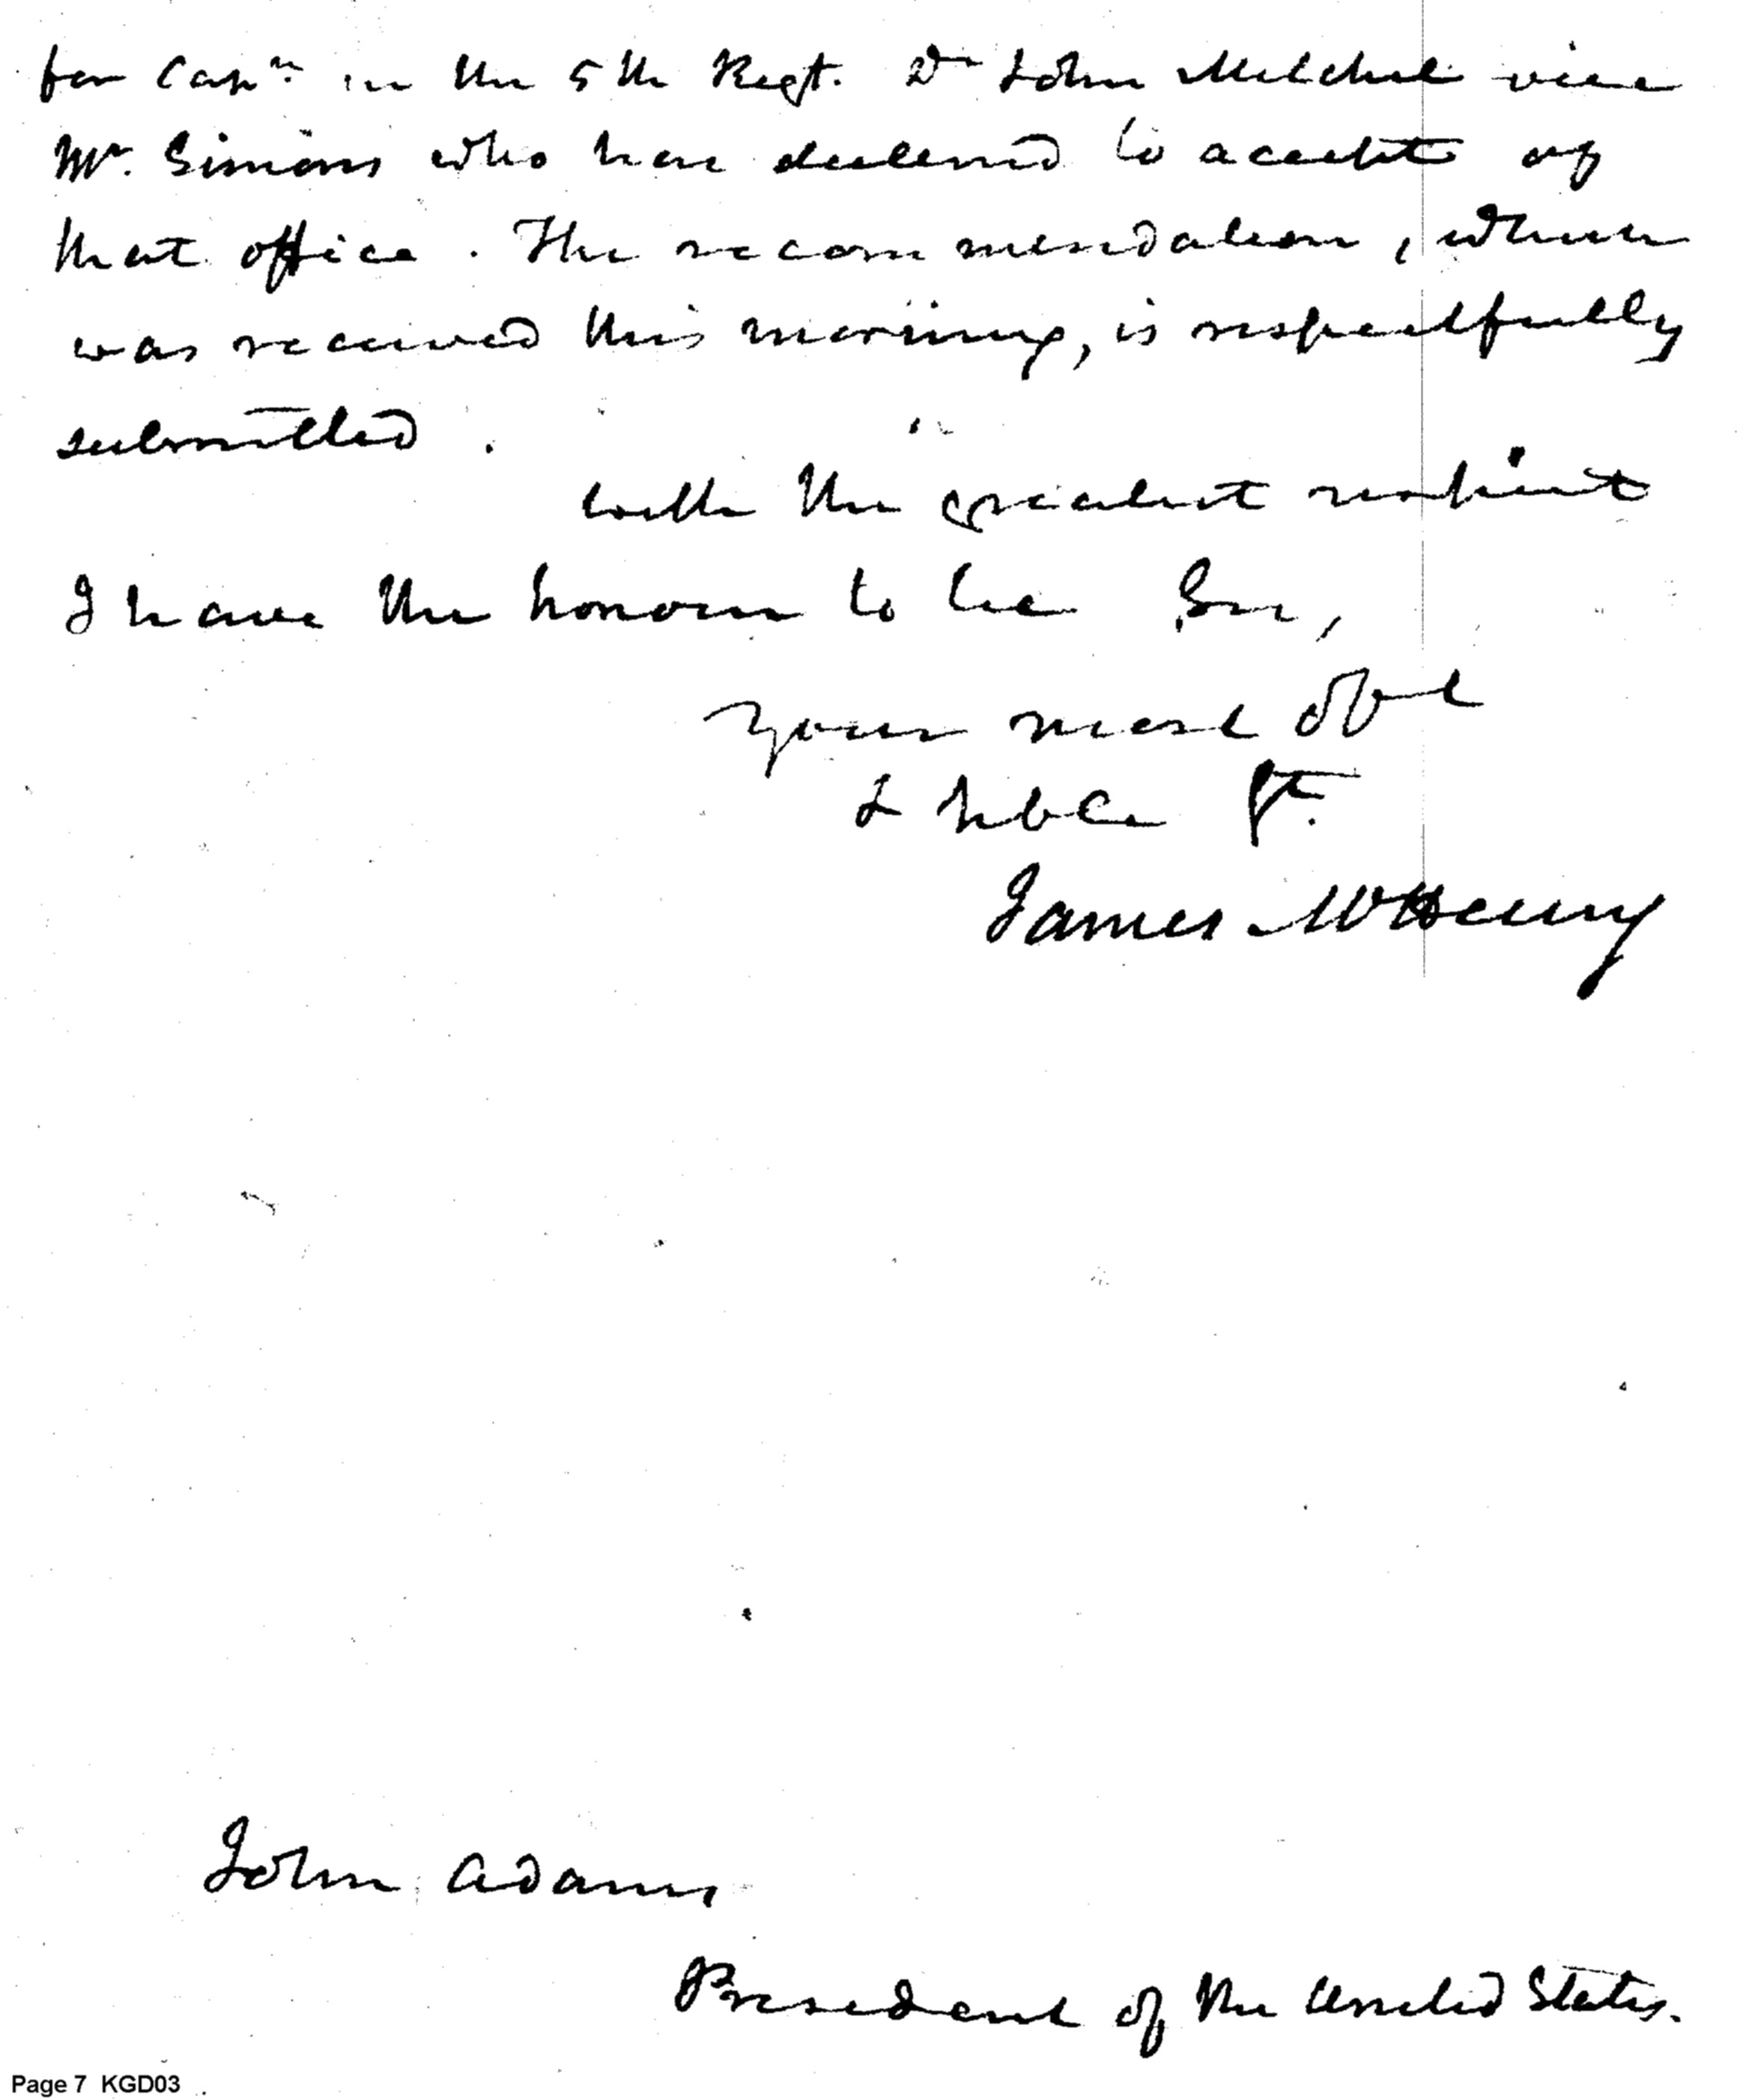 for Capn. in the 5th Regt. Dr John Mitchel vice
Mr. Simons who has declined to accept of
that office. The recommendation, which
was received this morning, is respectfully
submitted.
With the greatest respect
I have the honour to be Sir,
your most obt
& hble St.
James McHenry
John Adams
President of the United States.
Page 7 KGD03